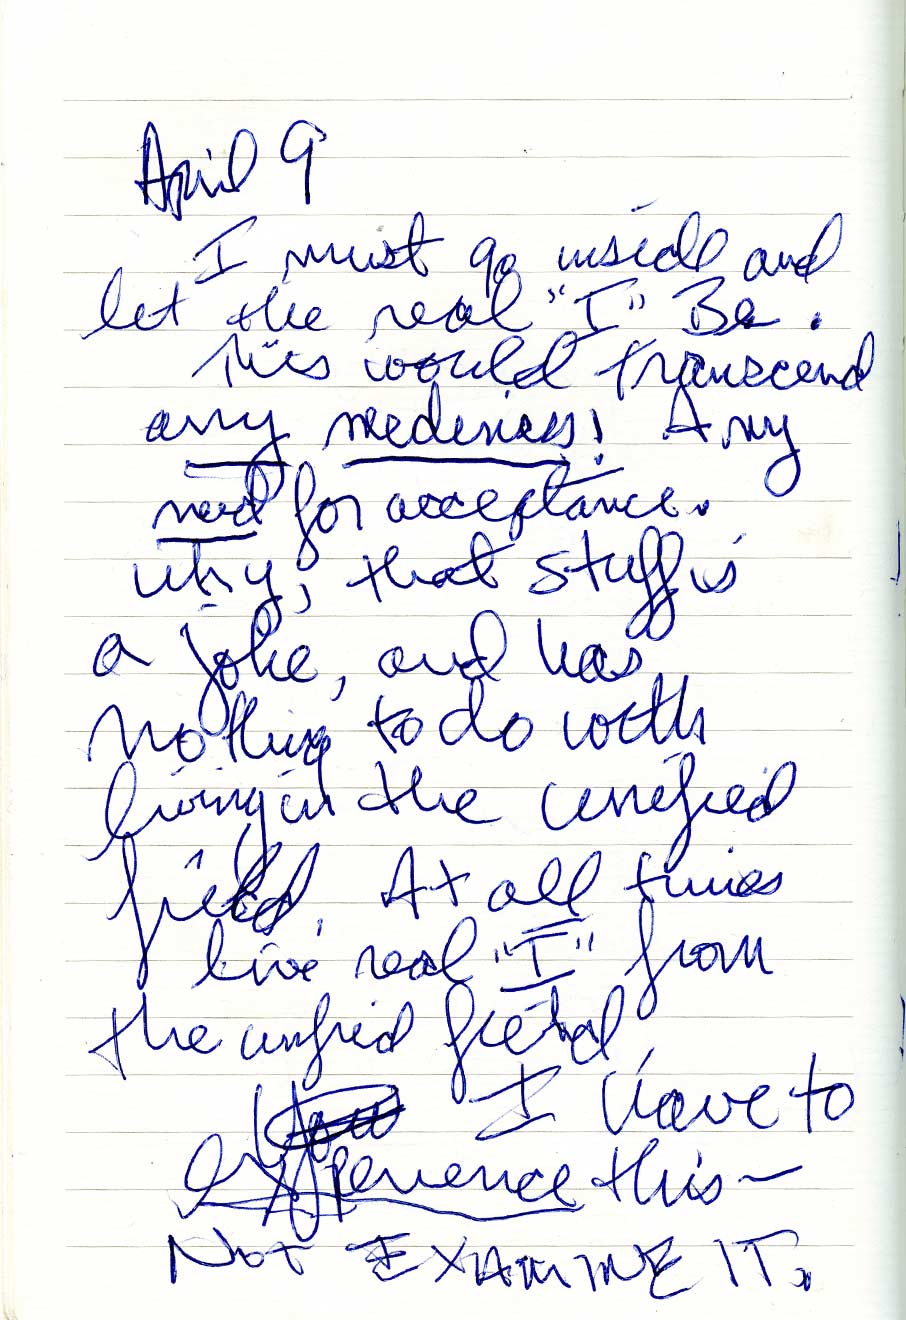 April 9
I must go inside and
let the real "I" Be.
This would transcend
any neediness! Any
need for acceptance.
Why, that stuff is
a joke, and has
nothing to do with
living in the unified
field. At all times
live real "I" from
the unfied field
How I have to
experience this—
NOT EXAMINE IT.